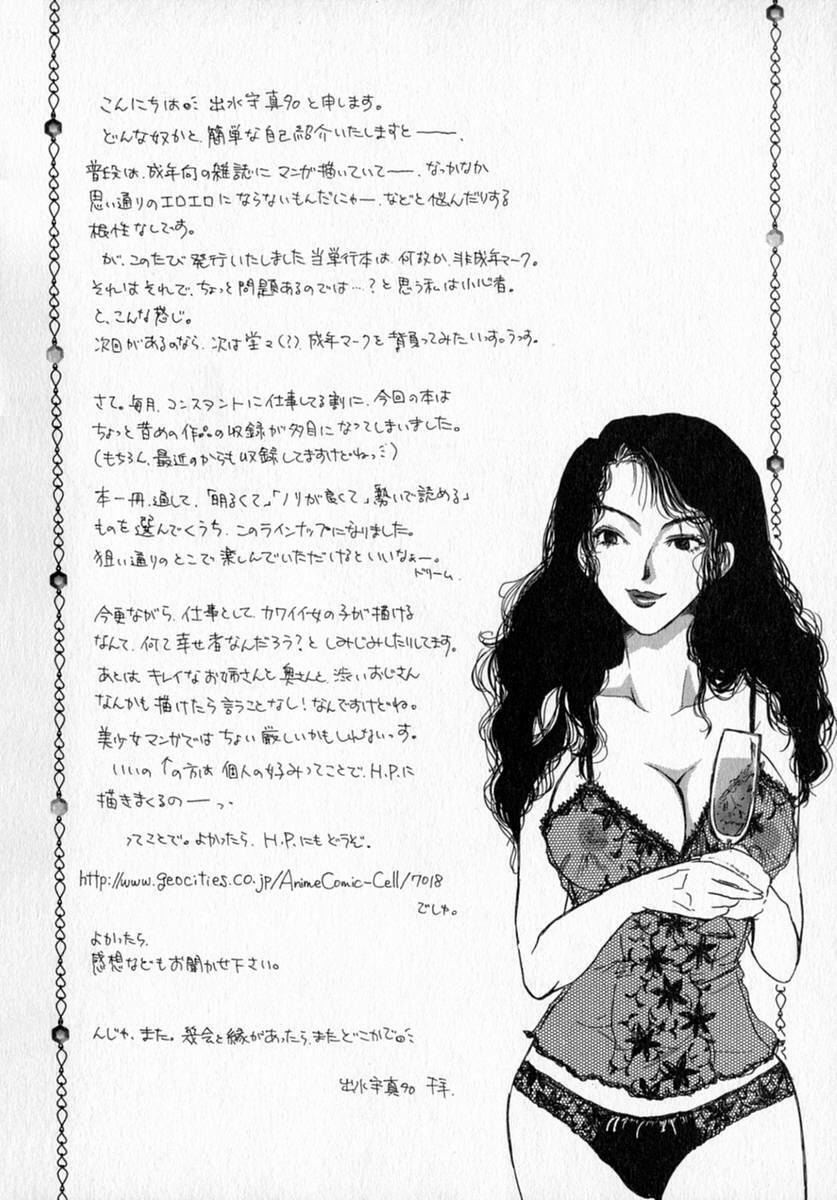 こんにちは 出水宇真90と申します。
どんな奴かと、簡単な自己紹介いたしますと――、
普段は、成年向の雑誌に マンガ描いていて――、なっかなか
思い通りのエロエロにならないもんだにゃー、などと悩んだりする
根性なしです。
が、このたび 発行いたしました 当単行本は 何故か、非成年マーク。
それはそれで、ちょっと問題あるのでは…？と思う私は小心者。
と、こんな感じ。
次回があるのなら、次は堂々(？)、成年マークを背負ってみたいっす。うっす。
さて。毎月、コンスタントに仕事してる割に、今回の本は
ちょっと昔めの作品の収録が多目になってしまいました。
(もちろん、最近のからも収録してますけどねっ)
本一冊、通して、「明るくて」「ノリが良くて」勢いで読める」
ものを選んでくうち、このラインナップになりました。
狙い通りのとこで楽しんでいただけるといいなぁー。
ドリーム。
今更ながら、仕事として、カワイイ女の子が描ける
なんて、何て幸せ者なんだろう？と しみじみしたりしてます。
あとは キレイなお姉さんと 奥さんと、渋いおじさん
なんかも 描けたら言うことなし！なんですけどね。
美少女マンガでは ちょい厳しいかもしれないっす。
いいの ↑の方は 個人の好みってことで、H.P.に
描きまくるの――っ、
ってことで。よかったら、H.P.にもどうぞ。
http://www.geocities.co.jp/AnimeComic-Cell/7018
でしゅ。
よかったら、
感想などもお聞かせ下さい。
んじゃ、また。機会と縁があったら、またどこかで
出水宇真90